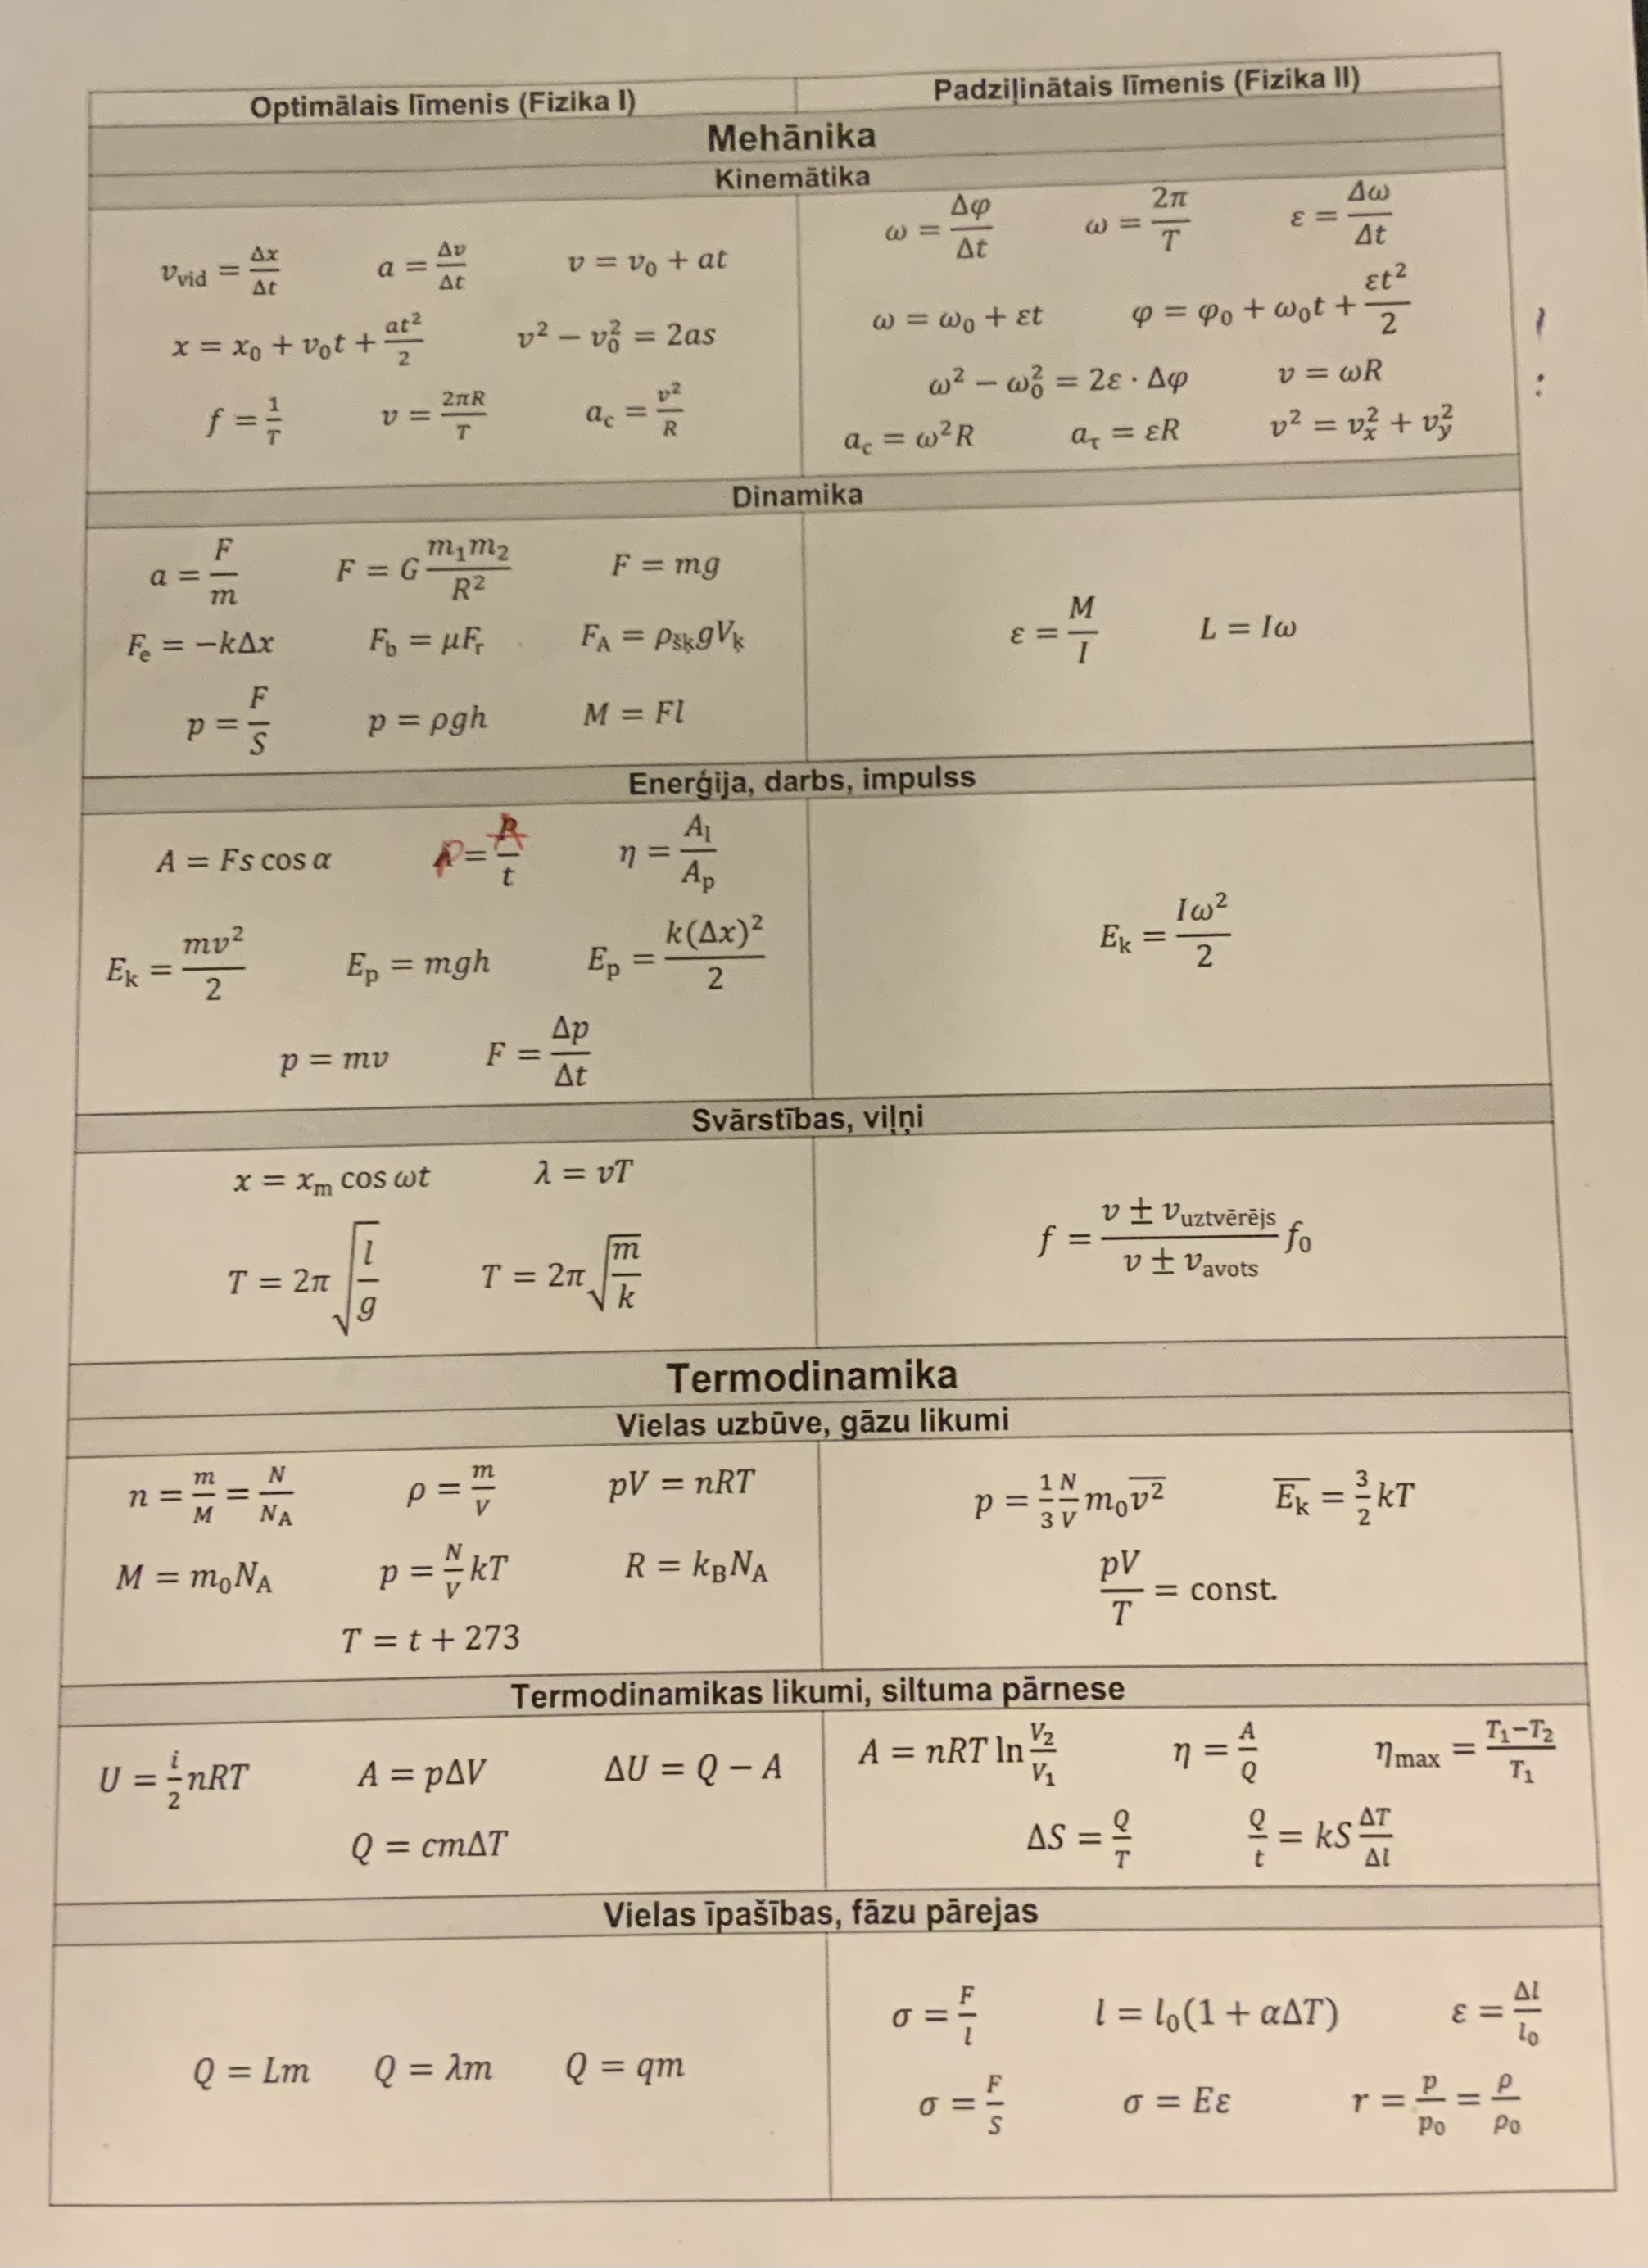 Optimālais līmenis (Fizika I) Padziļinātais līmenis (Fizika II)
Mehānika
Kinemātika
v_vid = Δx/Δt a = Δv/Δt v = v₀ + at
x = x₀ + v₀t + at²/2 v² − v₀² = 2as
f = 1/T v = 2πR/T a_c = v²/R
ω = Δφ/Δt ω = 2π/T ε = Δω/Δt
ω = ω₀ + εt φ = φ₀ + ω₀t + εt²/2
ω² − ω₀² = 2ε · Δφ v = ωR
a_c = ω²R a_τ = εR v² = v_x² + v_y²
Dinamika
a = F/m F = G m₁m₂/R² F = mg
F_e = −kΔx F_b = μF_r F_A = ρ_šķ gV_ķ
p = F/S p = ρgh M = Fl
ε = M/I L = Iω
Enerģija, darbs, impulss
A = Fs cos α P = A/t η = A_l/A_p
E_k = mv²/2 E_p = mgh E_p = k(Δx)²/2
p = mv F = Δp/Δt
E_k = Iω²/2
Svārstības, viļņi
x = x_m cos ωt λ = vT
T = 2π√(l/g) T = 2π√(m/k)
f = (v ± v_uztvērējs)/(v ± v_avots) f₀
Termodinamika
Vielas uzbūve, gāzu likumi
n = m/M = N/N_A ρ = m/V pV = nRT
M = m₀N_A p = N/V kT R = k_B N_A
T = t + 273
p = 1/3 N/V m₀v̅²̅ E̅_k̅ = 3/2 kT
pV/T = const.
Termodinamikas likumi, siltuma pārnese
U = i/2 nRT A = pΔV ΔU = Q − A
Q = cmΔT
A = nRT ln V₂/V₁ η = A/Q η_max = (T₁−T₂)/T₁
ΔS = Q/T Q/t = kS ΔT/Δl
Vielas īpašības, fāzu pārejas
Q = Lm Q = λm Q = qm
σ = F/l l = l₀(1 + αΔT) ε = Δl/l₀
σ = F/S σ = Eε r = p/p₀ = ρ/ρ₀